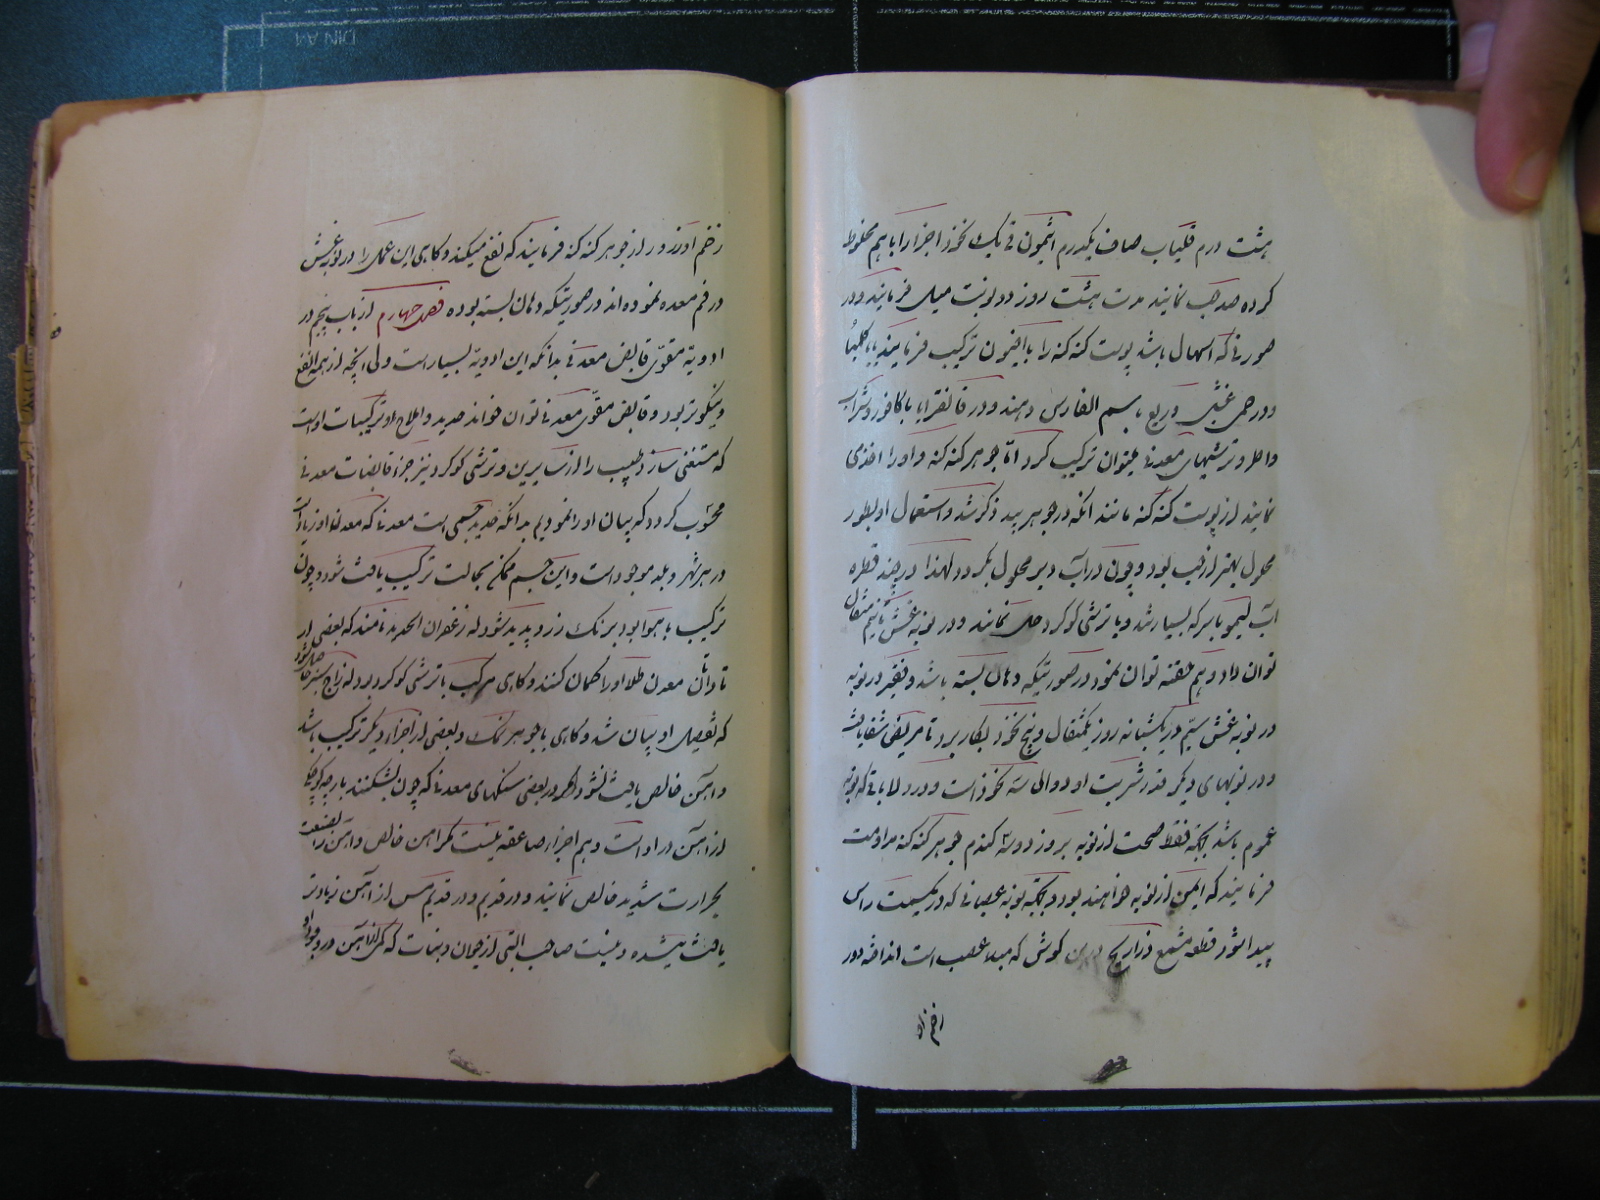 هشت درم قلیاب صاف یکدرم افیون نیم یک نخود اجزا را با هم مخلوط
کرده صد حب نمایند مدت هشت روز دو نوبت میل فرمایند و در
صورتی که اسهال باشد پوست کنه کنه را با افیون ترکیب فرمایند یا
و در حمی غشی و ربع با سم الفار می دهند و در قانقرایا با کافور و شراب
و املاح و ترشیهای معدنی میتوان ترکیب کرد اما جوهر کنه کنه و او را اخذ می
نمایند از پوست کنه کنه مانند آنکه در جوهر بید ذکر شد و استعمال او بطور
محلول بهتر از حب بود و چون در آب دیر محلول بگردد لهذا در چند قطره
آب لیمو یا سرکه بسیار شد و یا ترشی گوگرد حل نمایند و در نوبه غش تا نیم مثقال
توان داد و هم حقنه توان نمود در صورتیکه دهان بسته باشد و فقیر در نوبه
در نوبه غش سیم در یکشبانه روز یکمثقال و پنج نخود بکار بردم تا مریض شفا یافت
و در نوبهای دیگر قدر شربت او دو الی سه نخود است و در ولایاتی که نوبه
عموم باشد بجهة حفظ صحت از نوبه هر روز دو سه گندم جوهر کنه کنه مداومت
فرمایند که ایمن از نوبه خواهند بود و بجهة نوبه عصبانی که در یکسمت راس
پیدا شود قطعه مشمع ذراریح در بن گوش که مبدء عصب است انداخته و در
زخم آن
زخم او زرور از جوهر کنه کنه فرمایند که نفع میکند و گاهی این عمل را در نوبه غش
در فم معده نموده اند در صورتیکه دهان بسته بوده فصل چهارم از باب پنجم در
ادویه مقوی قابض معدنی بدانکه این ادویه بسیار است ولی آنچه از همه انفع
و نیکوتر بود و قابض مقوی معدنی توان خواند حدید و املاح او و ترکیبات اوست
که مستغنی سازد طبیب را از سایرین و ترشی گوگرد نیز جزء قابضات معدنی
محسوب گردد که بیان او را نمودیم بدانکه حدید جسمی است معدنی که معدنهای او زیاد است
در هر شهر و بلد موجود است و این جسم ممکن بحالت ترکیب یافت شود و چون
ترکیب با هوا بود برنگ زرد پدید شود که زعفران الحدید نامند که بعضی از
نادانان معدن طلا او را گمان کنند و گاهی مرکب با ترشی گوگرد بود که زاج سبز حاصل شود
که تفصیل او بیان شد و گاهی با جوهر نمک و بعضی از اجزاء دیگر ترکیب باشد
و آهن خالص یافت نشود مگر در بعضی سنگهای معدنی که چون بشکنند پارچه کوچک
از آهن در او است و هم اجزاء صاعقه نیست مگر آهن خالص و آهن را بصنعت
بحرارت شدید خالص نمایند و در قدیم و در قدیم مس از آهن زیادتر
یافت میشده و نیست صاحب آلتی از حیوان و نبات که مگر آنکه آهن در وجود او